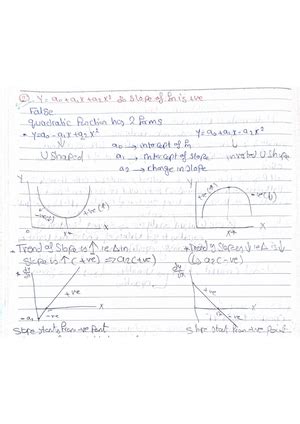 ② Y = a₀ + a₁x + a₂x² ∴ Slope of fn is +ve
False
quadratic function has 2 forms
* Y = a₀ - a₁x + a₂x²      Y = a₀ + a₁x - a₂x²
a₀ → intercept of fn
U Shaped    a₁ → intercept of slope    inverted U Shape
a₂ → change in slope
Y    Y
-ve    +ve    +ve    -ve
0    x*    X    x*    X
* Trend of Slope is ↑ ie Δ in    * Trend of Slope is ↓ ie Δ is ↓
Slope is ↑ (+ve) ⇒ a₂ (+ve)    a₂ (-ve)
dy/dx    dy/dx
+ve    +ve
X    X
-a₁    -ve    -ve
Slope start from -ve point    Slope start from +ve point